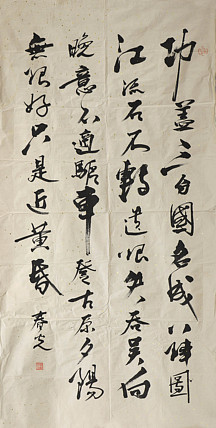 功蓋三分國名成八陣圖
江流石不轉遺恨失吞吳向
晚意不適驅車登古原夕陽
無限好只是近黃昏
春光